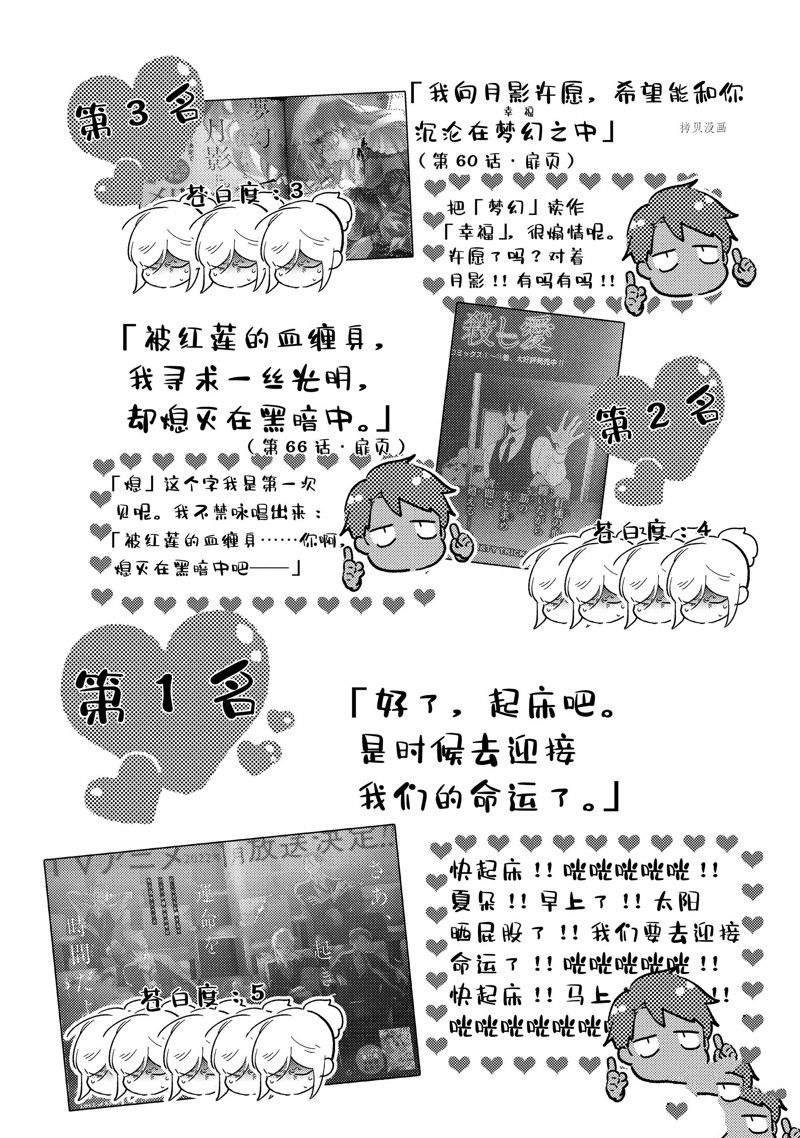 第3名
「我向月影许愿，希望能和你
幸福
沉沦在梦幻之中」
（第60话·扉页）
拷贝漫画
夢幻
月影に
苍白度：3
把「梦幻」读作
「幸福」，很煽情呢。
许愿了吗？对着
月影!!有吗有吗!!
「被红莲的血缠身，
我寻求一丝光明，
却熄灭在黑暗中。」
（第66话·扉页）
殺し愛
第2名
苍白度：4
「熄」这个字我是第一次
见呢。我不禁咏唱出来：
「被红莲的血缠身……你啊，
熄灭在黑暗中吧——」
第1名
「好了，起床吧。
是时候去迎接
我们的命运了。」
TVアニメ2022年1月放送決定!!
さあ、
起き
運命を
時間だよ
苍白度：5
快起床!!咣咣咣咣咣!!
夏朵!!早上了!!太阳
晒屁股了!!我们要去迎接
命运了!!咣咣咣咣咣!!
快起床!!马上
咣咣咣咣咣咣